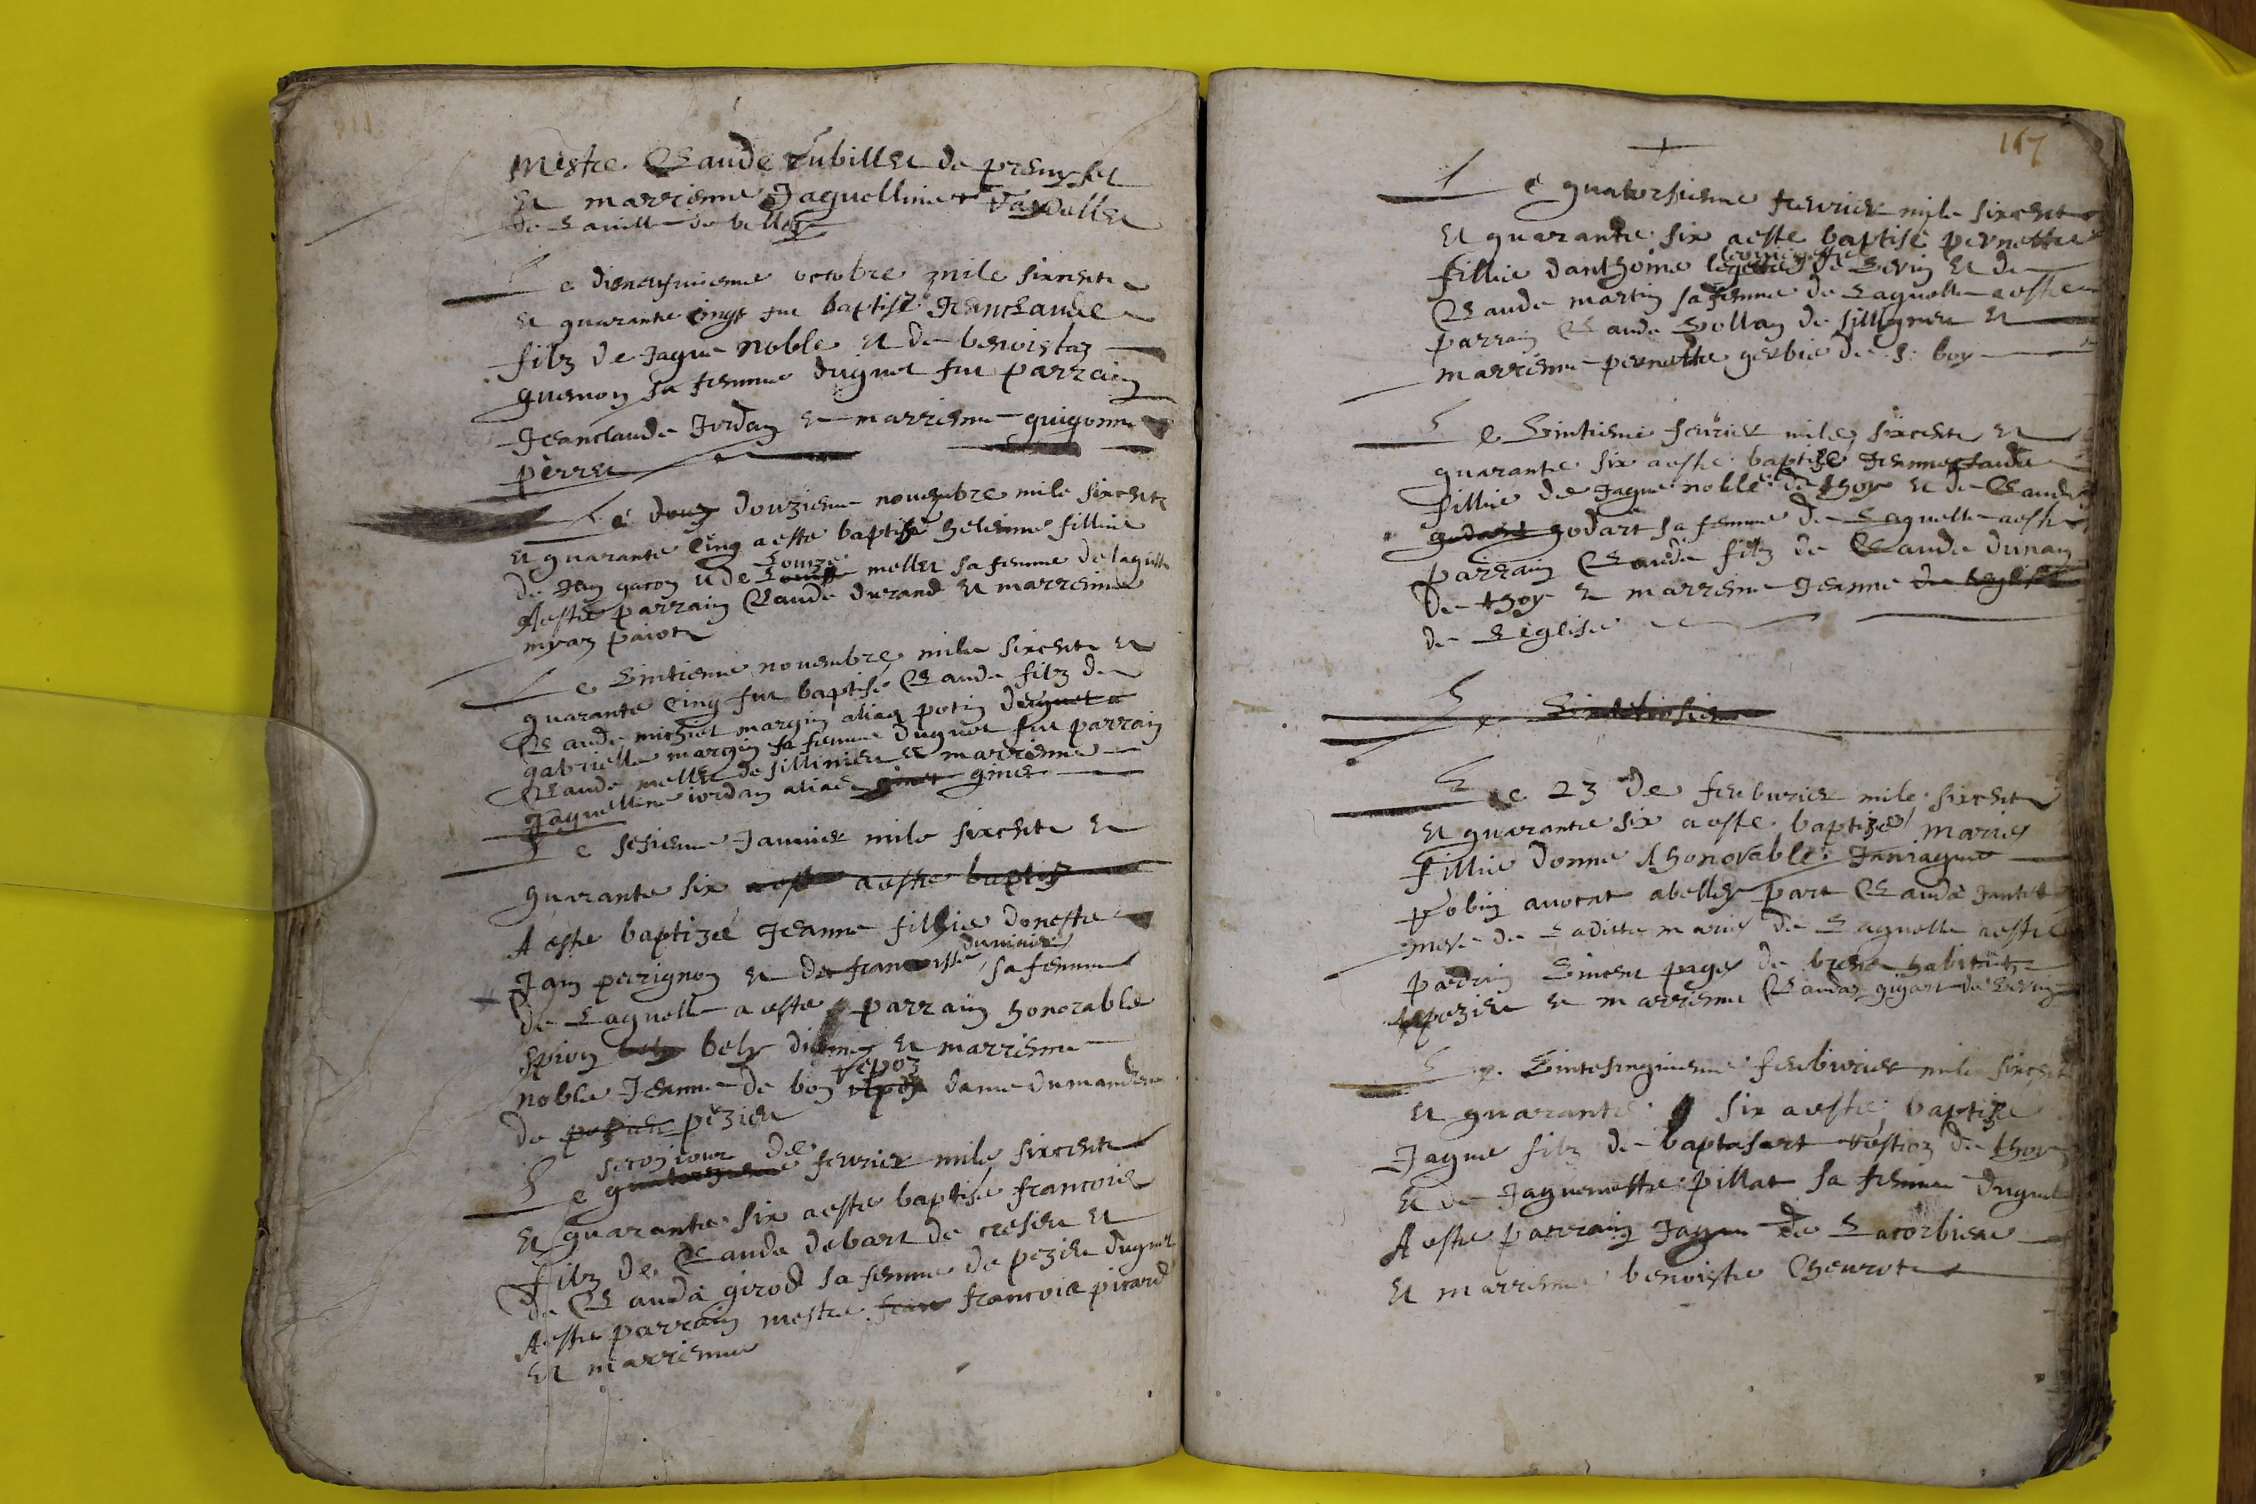 Mestre Claude Cubillet de premyset
et marrienne Jaquelline Vavellet
de la ville de belley
Le dieneufvieme octobre mile sixcent
et quarante cinqt fut baptisé Jeanclaude
filz de Jaque noble et de benoistaz
guenon sa femme duquel fut parrain
Jeanclaude Jordan et marrienne guigonne
perret
Le douz douzieme novembre mile sixcent
et quarante cinq a esté baptisé helenne fillie
de Jan garon et de Louize mollet sa femme de laquelle
A esté parrain Claude durand et marrienne
myaz paiot
Le vintieme novembre mile sixcent et
quarante cinq fut baptisé Claude filz de
Claude michiel margin alias potin duquel a
gabrielle margin sa femme duquel fut parrain
Claude mollet de sillinieu et marrienne
Jaquelline iordan alias ginet ginet
Le sesieme Janvier mile sixcent et
quarante six a esté a esté baptisé
A esté baptizée Jeanne fillie doneste
Jan perrignon et de francoise dunoire sa femme
de laquelle a esté parrain honorable
spion bely bely et marrienne
noble Jeanne de bon repoz dame du mandem
de pezieu pezieu
Le quatorzieme segon iour de fevrier mile sixcent
et quarante six a esté baptisé francois
filz de Claude debart de cresieu et
de Clauda girod sa femme de pezieu duquel
A esté parrain mestre fran francois picard
et marrienne
167
Le quatorsieme fevrier mile sixcent
et quarante six a esté baptisé pernette
fillie danthoine de Sevin et de
Clauda martin sa femme de laquelle a esté
parrain Claude Sollan de sillignieu et
marrienne pernette gerbie de S: boy
Le vintieme fevrier mile sixcent et
quarante six a esté baptisé Jenneclauda
fillie de Jaque noble de thoy et de Clauda
godart godart sa femme de laquelle a esté
parrain Claude filz de Claude dunan
de thoy et marrienne Jeanne de leglise
de Leglise
Le
Le 23 de feubvrier mile sixcent
et quarante six a esté baptizé marie
fillie donne d honorable Janiaque
robin avocat a belley part Clauda Jantet
mere de laditte marie de laquelle a esté
pardrin vincent pages de brens habitant
a pezieu et marrienne Claudaz gigart de Sevin
Le vintesinquieme feubvrier mile sixcent
et quarante six a esté baptizé
Jaque filz de baptasart de thoy
et de Jaquemette pillat sa femme duquel
A esté parrain Jaque de Lacorbiere
et marrienne benoistte Chevrot